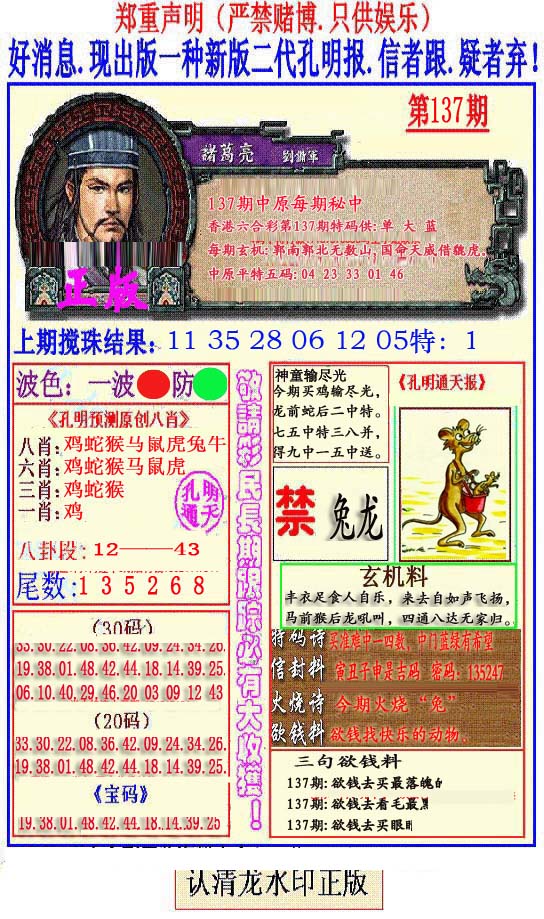 郑重声明（严禁赌博.只供娱乐）
好消息.现出版一种新版二代孔明报.信者跟.疑者弃!
第137期
諸葛亮 劉備軍
137期中原每期秘中
香港六合彩第137期特码供:单 大 蓝
每期玄机:郭南郭北无数山,国命天威借魏虎.
中原平特五码:04 23 33 01 46
正版
上期搅珠结果: 11 35 28 06 12 05特: 1
波色: 一波 防
《孔明预测原创八肖》
八肖:鸡蛇猴马鼠虎兔牛
六肖:鸡蛇猴马鼠虎
三肖:鸡蛇猴
一肖:鸡
孔明
通天
八卦段: 12——43
尾数:1 3 5 2 6 8
(30码)
33.30.22.08.36.42.09.24.34.26.
19.38.01.48.42.44.18.14.39.25.
06.10.40,29,46.20 03 09 12 43
(20码)
33.30.22.08.36.42.09.24.34.26.
19.38.01.48.42.44.18.14.39.25.
《宝码》
19.38.01.48.42.44.18.14.39.25
敬請彩民長期跟踪必有大收獲!
神童输尽光
今期买鸡输尽光,
龙前蛇后二中特。
七五中特三八并,
得九中一五中送。
《孔明通天报》
禁 兔龙
玄机料
丰衣足食人自乐，来去自如声飞扬,
马前猴后龙吼叫，四通八达无家归。
特码诗 买准难中一四数，中门蓝绿有希望
信封料 寅丑子申是吉码 密码: 135247
火烧诗 今期火烧“兔”
欲钱料 欲钱找快乐的动物.
三句欲钱料
137期:欲钱去买最落魄
137期:欲钱去看毛最
137期:欲钱去买眼
认清龙水印正版